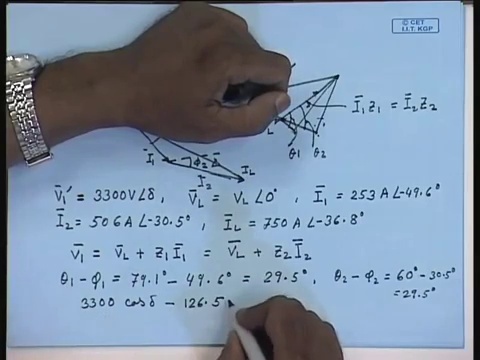 © CET
I.I.T. KGP
Ī₁Z₁ = Ī₂Z₂
Ī₁ φ₂ θ₁ θ₂
Ī₂ I_L
V̄₁' = 3300V∠δ, V̄_L = V_L∠0°, Ī₁ = 253A∠-49.6°
Ī₂ = 506A∠-30.5°, Ī_L = 750A∠-36.8°
V̄₁ = V̄_L + Z₁Ī₁ = V̄_L + Z₂Ī₂
θ₁-φ₁ = 79.1°-49.6° = 29.5°, θ₂-φ₂ = 60°-30.5°
=29.5°
3300 cosδ - 126.5